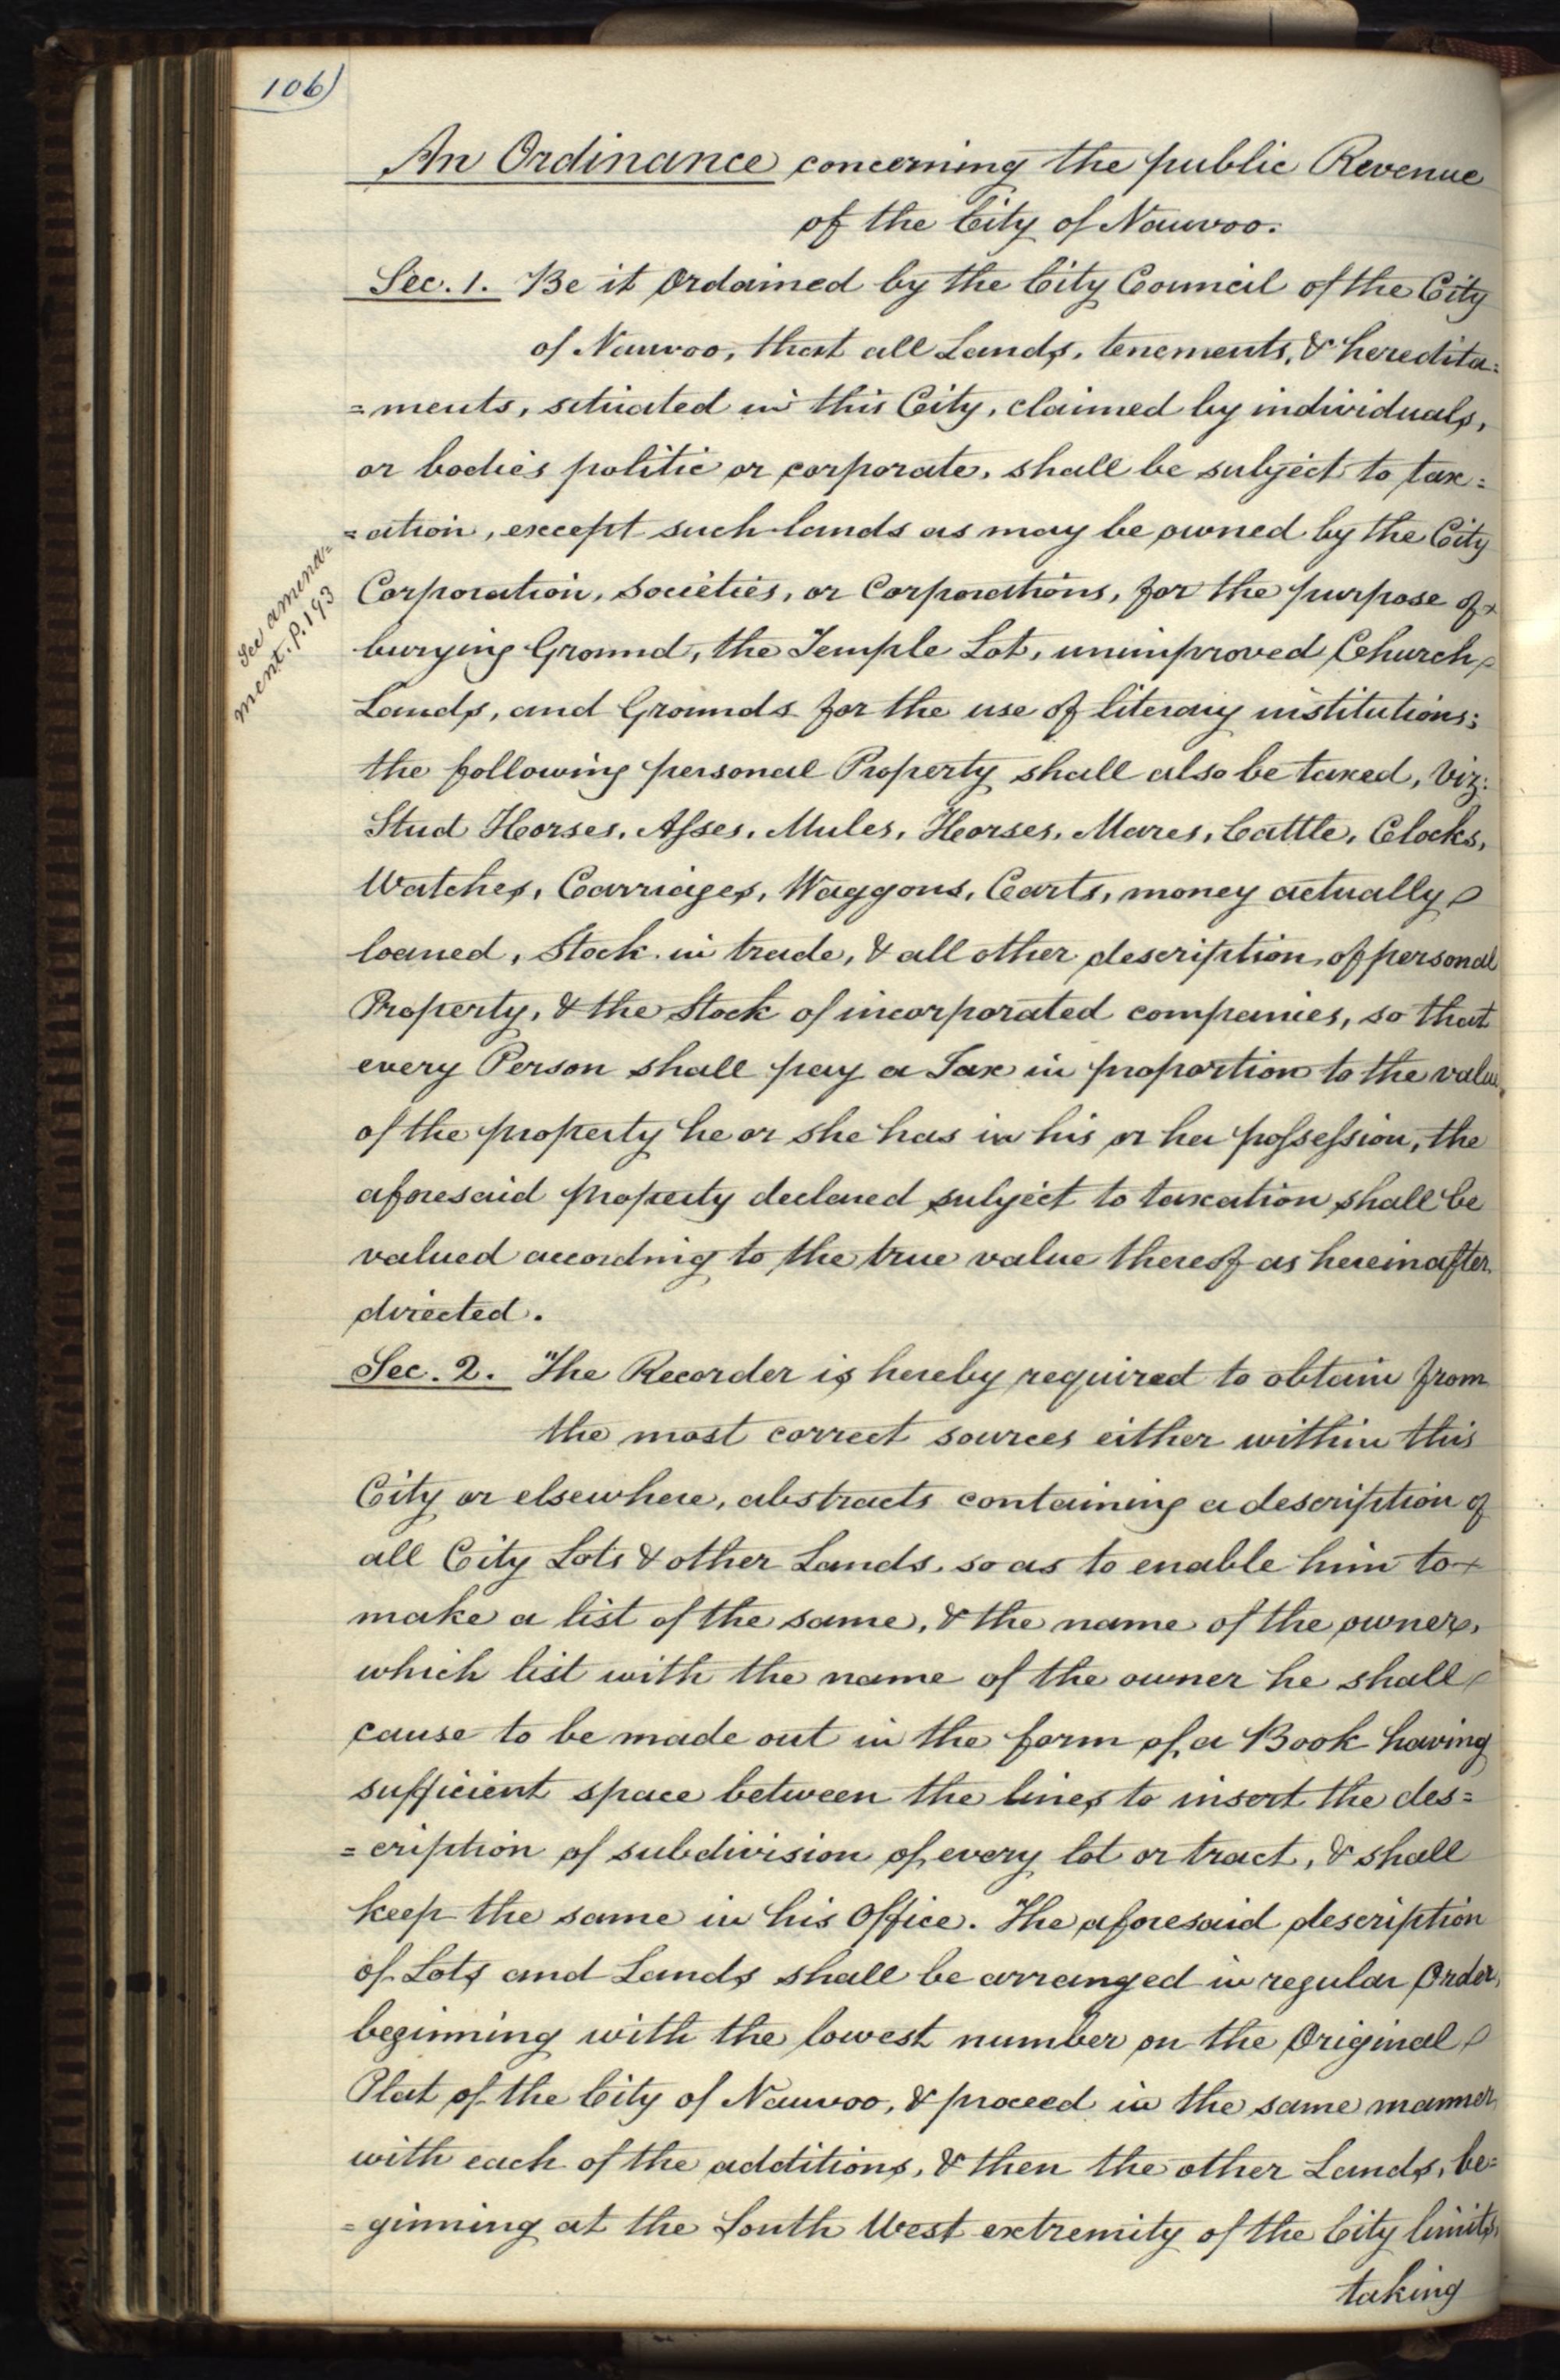 106)
An Ordinance concerning the public Revenue
of the City of Nauvoo.
Sec. 1. Be it Ordained by the City Council of the City
of Nauvoo, that all Lands, tenements, & heredita=
=ments, situated in this City, claimed by individuals,
or bodies politic or corporate, shall be subject to tax=
=ation, except such lands as may be owned by the City
See amend=
ment. p. 193
Corporation, Societies, or Corporations, for the purpose of
burying Ground, the Temple Lot, unimproved Church
Lands, and Grounds for the use of literary institutions;
the following personal Property shall also be taxed, Viz:
Stud Horses, Asses, Mules, Horses, Mares, Cattle, Clocks,
Watches, Carriages, Waggons, Carts, money actually
loaned, Stock in trade, & all other description of personal
Property, & the Stock of incorporated companies, so that
every Person shall pay a Tax in proportion to the value
of the property he or she has in his or her possession, the
aforesaid property declared subject to taxation shall be
valued according to the true value thereof as hereinafter
directed.
Sec. 2. The Recorder is hereby required to obtain from
the most correct sources either within this
City or elsewhere, abstracts containing a description of
all City Lots & other Lands, so as to enable him to
make a list of the same, & the name of the owners,
which list with the name of the owner he shall
cause to be made out in the form of a Book having
sufficient space between the lines to insert the des=
=cription of subdivision of every lot or tract, & shall
keep the same in his Office. The aforesaid description
of Lots and Lands shall be arranged in regular Order,
beginning with the lowest number on the Original
Plat of the City of Nauvoo, & proceed in the same manner
with each of the additions, & then the other Lands, be=
=ginning at the South West extremity of the City limits,
taking